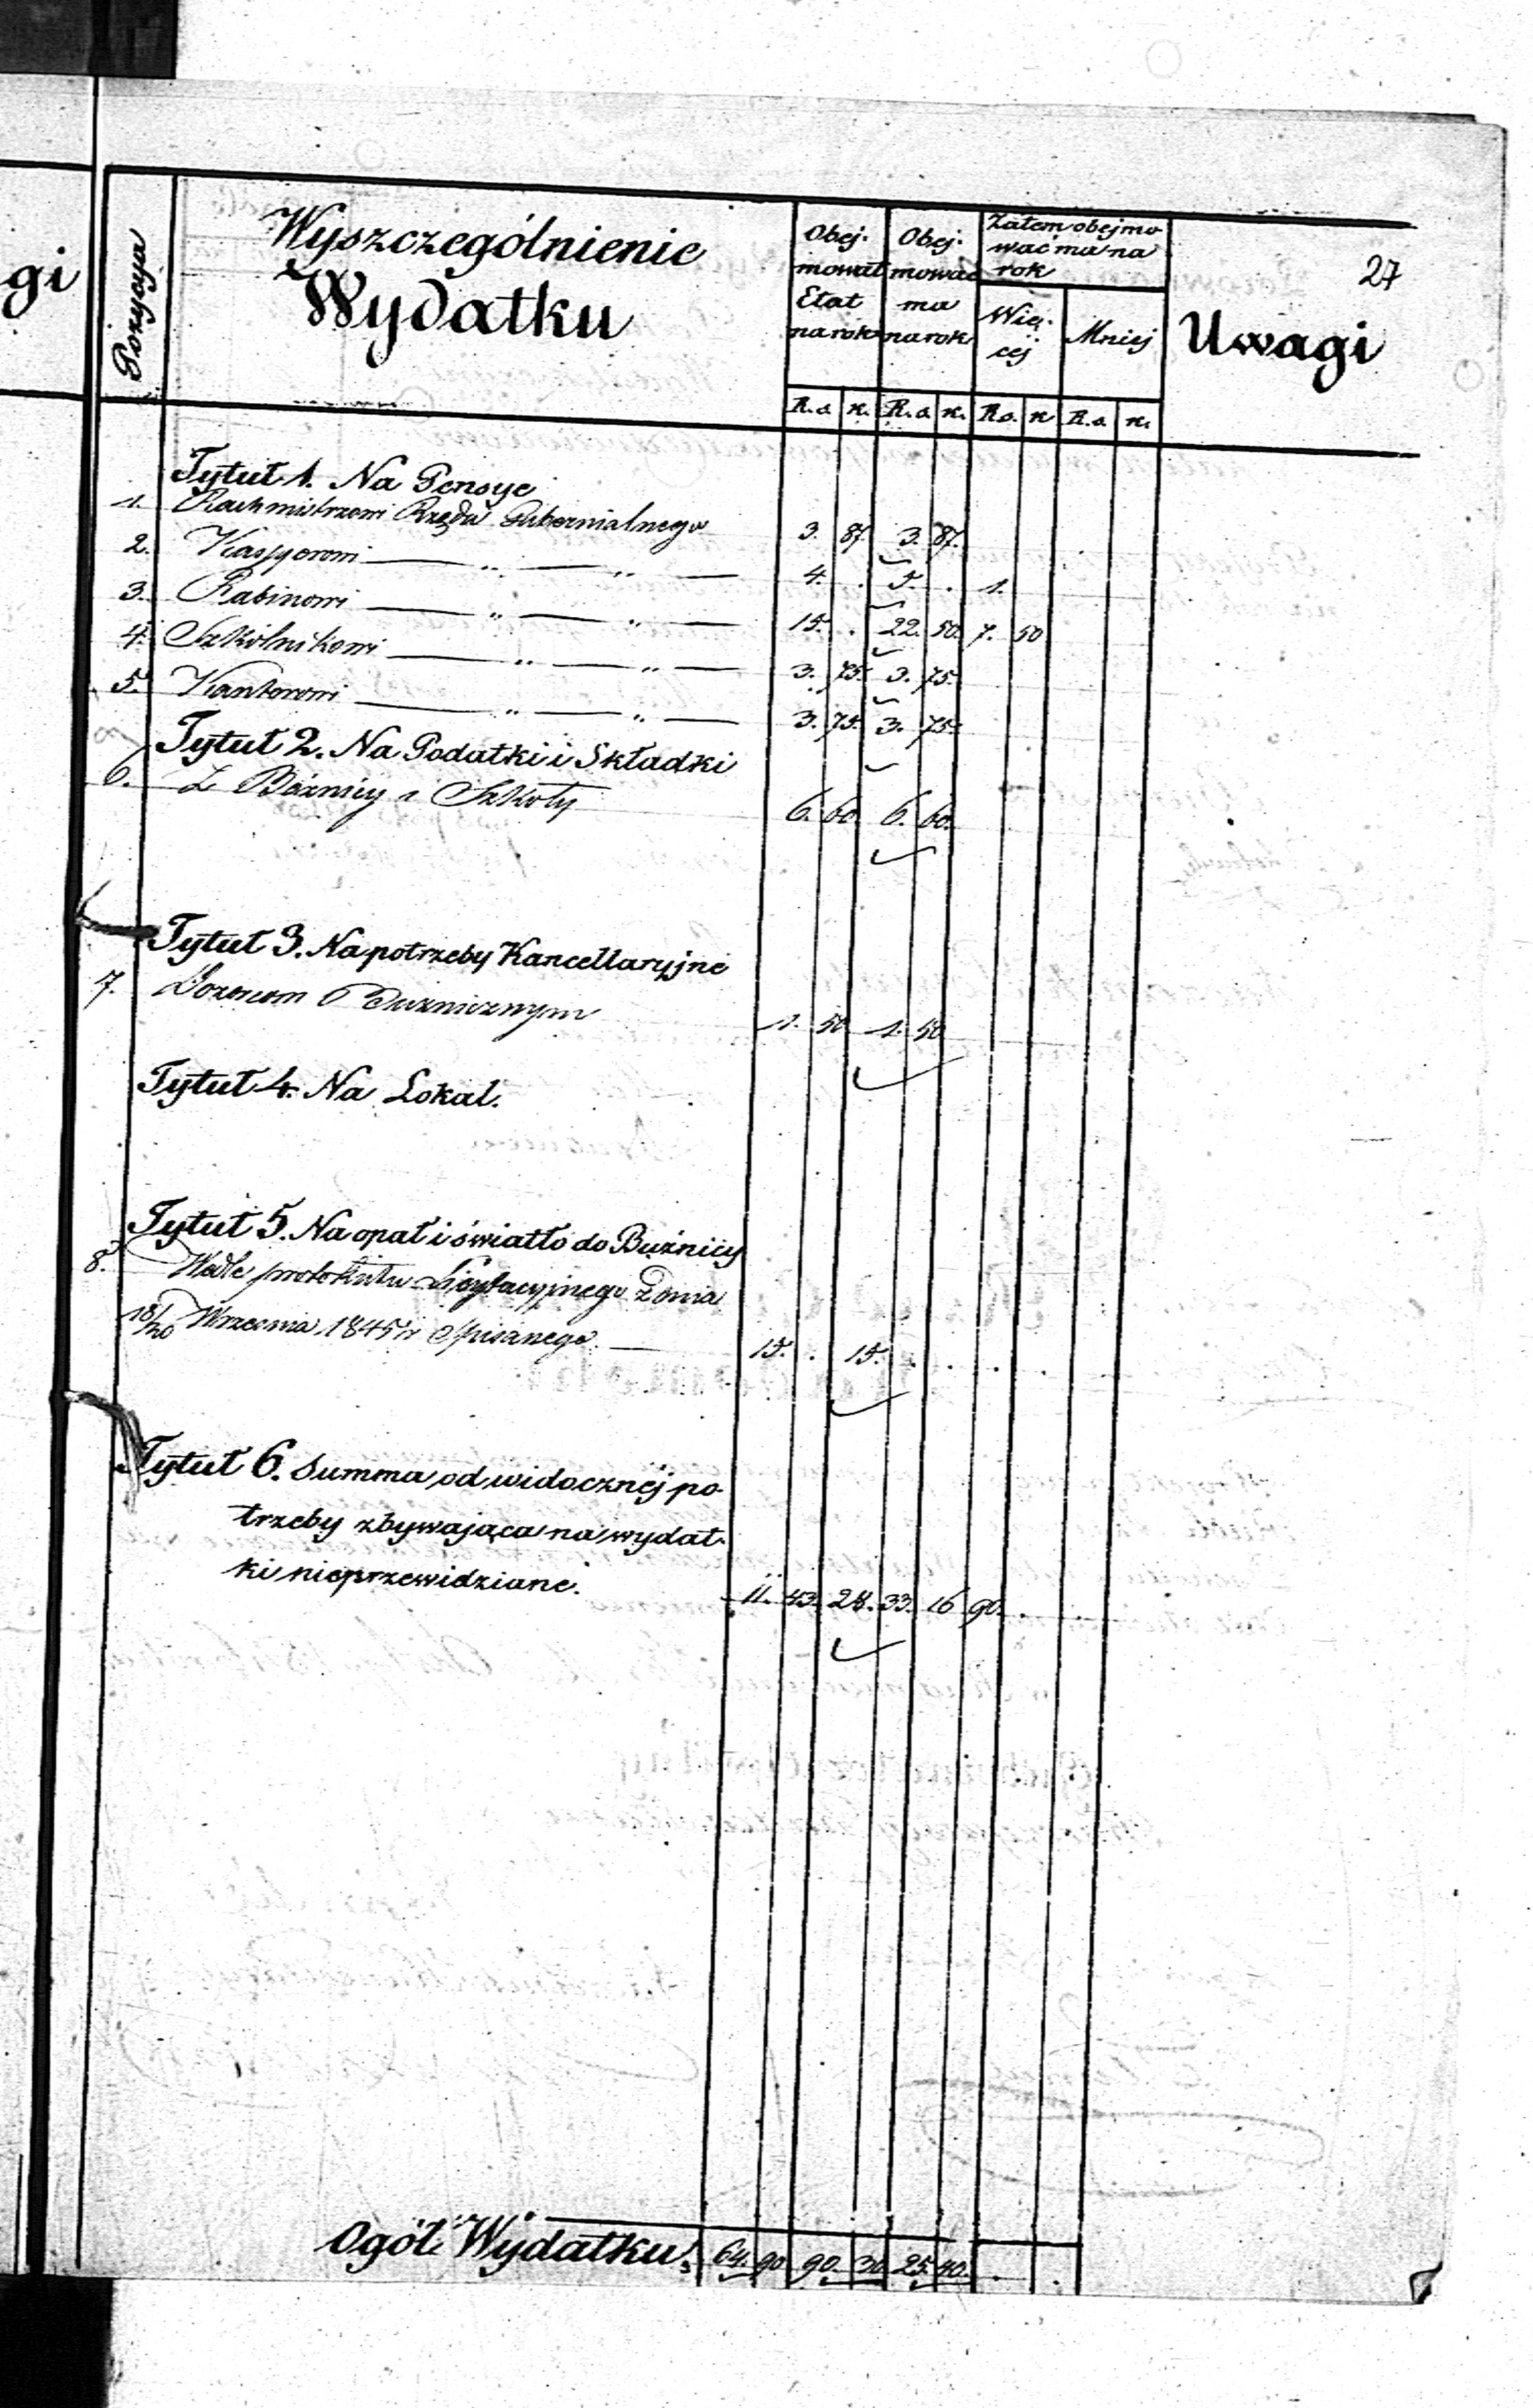 gi
27
Pozycya
Wyszczególnienie
Wydatku
Obej-
mował
Etat
na rok
Obej-
mować
ma
na rok
Zatem obejmo-
wać ma na
rok
Wię-
cej
Mniej
Uwagi
R.s. k. R.s. k. R.s. k R.s. k.
Tytuł 1. Na Pensye
1. Rachmistrzowi Rządu Gubernialnego 3. 87. 3. 87.
2. Kassyerowi — „ — „ — 4. . 5. . 1.
3. Rabinowi — „ — „ — 15. . 22. 50. 7. 50
4. Szkolnikowi — „ — „ — 3. 75. 3. 75.
5. Kantorowi — „ — „ — 3. 75. 3. 75.
Tytuł 2. Na Podatki i Składki
6. Z Bóżnicy i Szkoły 6. 60. 6. 60.
Tytuł 3. Na potrzeby Kancellaryjne
7. Dozorcom Bużnicznym 1. 50 1. 50
Tytuł 4. Na Lokal.
Tytuł 5. Na opał i światło do Buźnicy
8. Wedle protokułu Licytacyjnego z dnia
18/30 Września 1845 r Spisanego. — 15. . 15. . . . .
Tytuł 6. Summa od widocznéj po-
trzeby zbywająca na wydat-
ki nieprzewidziane. 11. 43. 28. 33. 16 90. . .
Ogół Wydatku. 64. 90 90. 30 25. 40. . .